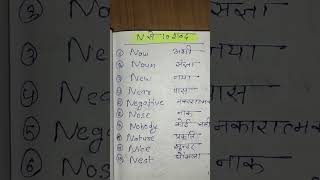 N से 10 शब्द
① Now अभी
② Noun संज्ञा
③ New नया
④ Near पास
⑤ Negative नकारात्मक
⑥ Nose नाक
⑦ Nobody कोई नहीं
⑧ Nature प्रकृति
⑨ Nice सुन्दर
⑩ Nest घोंसला